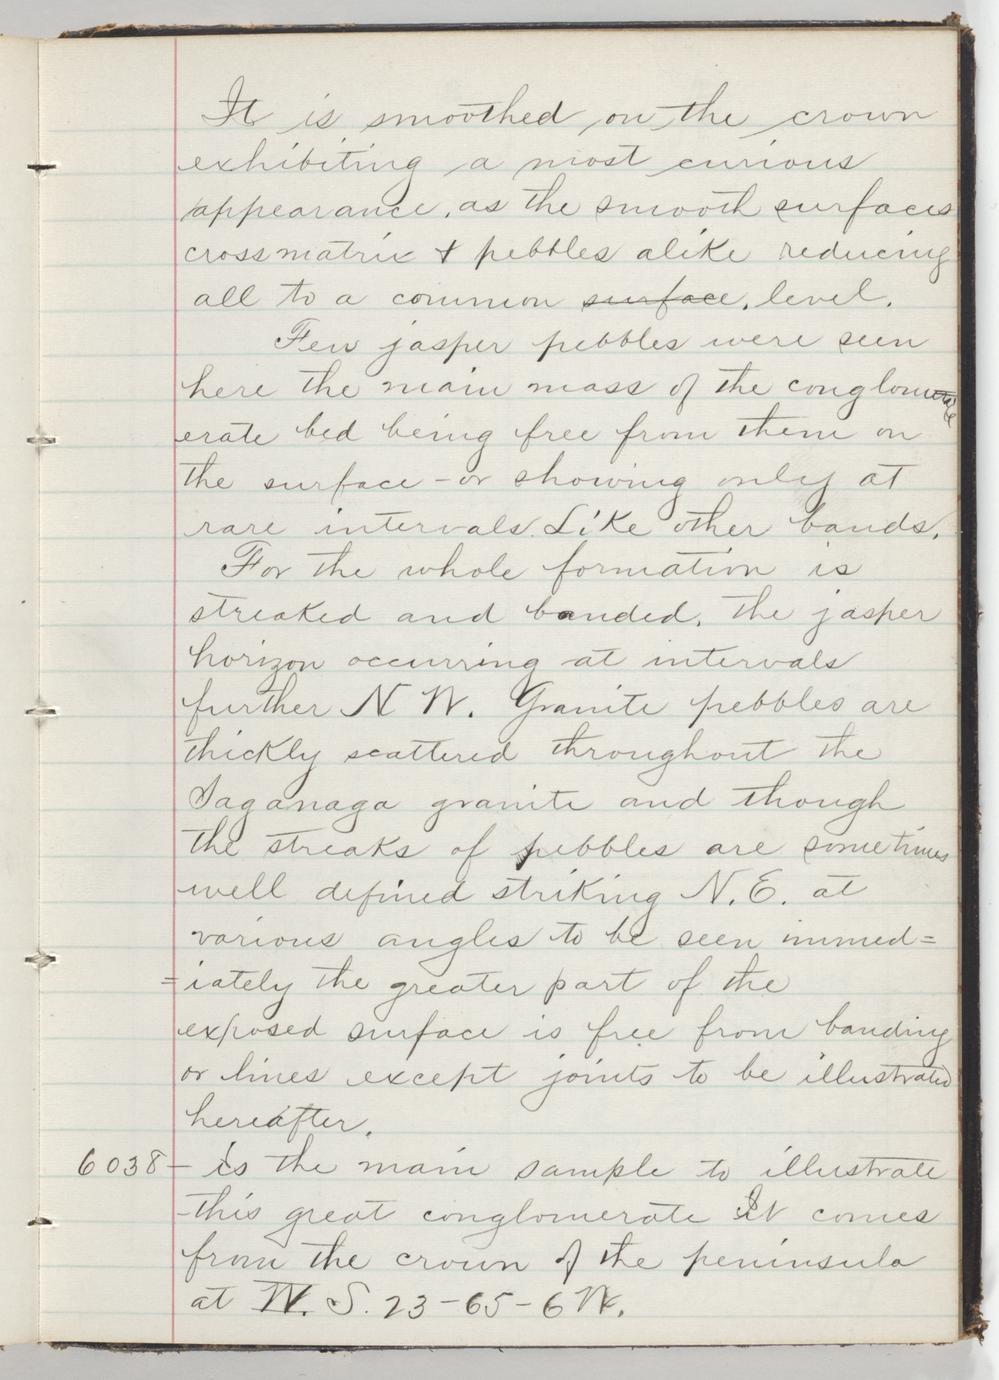 It is smoothed on the crown
exhibiting a most curious
appearance, as the smooth surfaces
cross matrix & pebbles alike reducing
all to a common surface, level.
Few jasper pebbles were seen
here the main mass of the conglom
erate bed being free from them on
the surface - or showing only at
rare intervals. Like other bands.
For the whole formation is
streaked and banded, the jasper
horizon occurring at intervals
further N W. Granite pebbles are
thickly scattered throughout the
Saganaga granite and though
the streaks of pebbles are sometimes
well defined striking N.E. at
various angles to be seen immed=
=iately the greater part of the
exposed surface is free from banding
or lines except joints to be illustrated
hereafter.
6038 - is the main sample to illustrate
this great conglomerate It comes
from the crown of the peninsula
at W. S. 23-65-6 W.